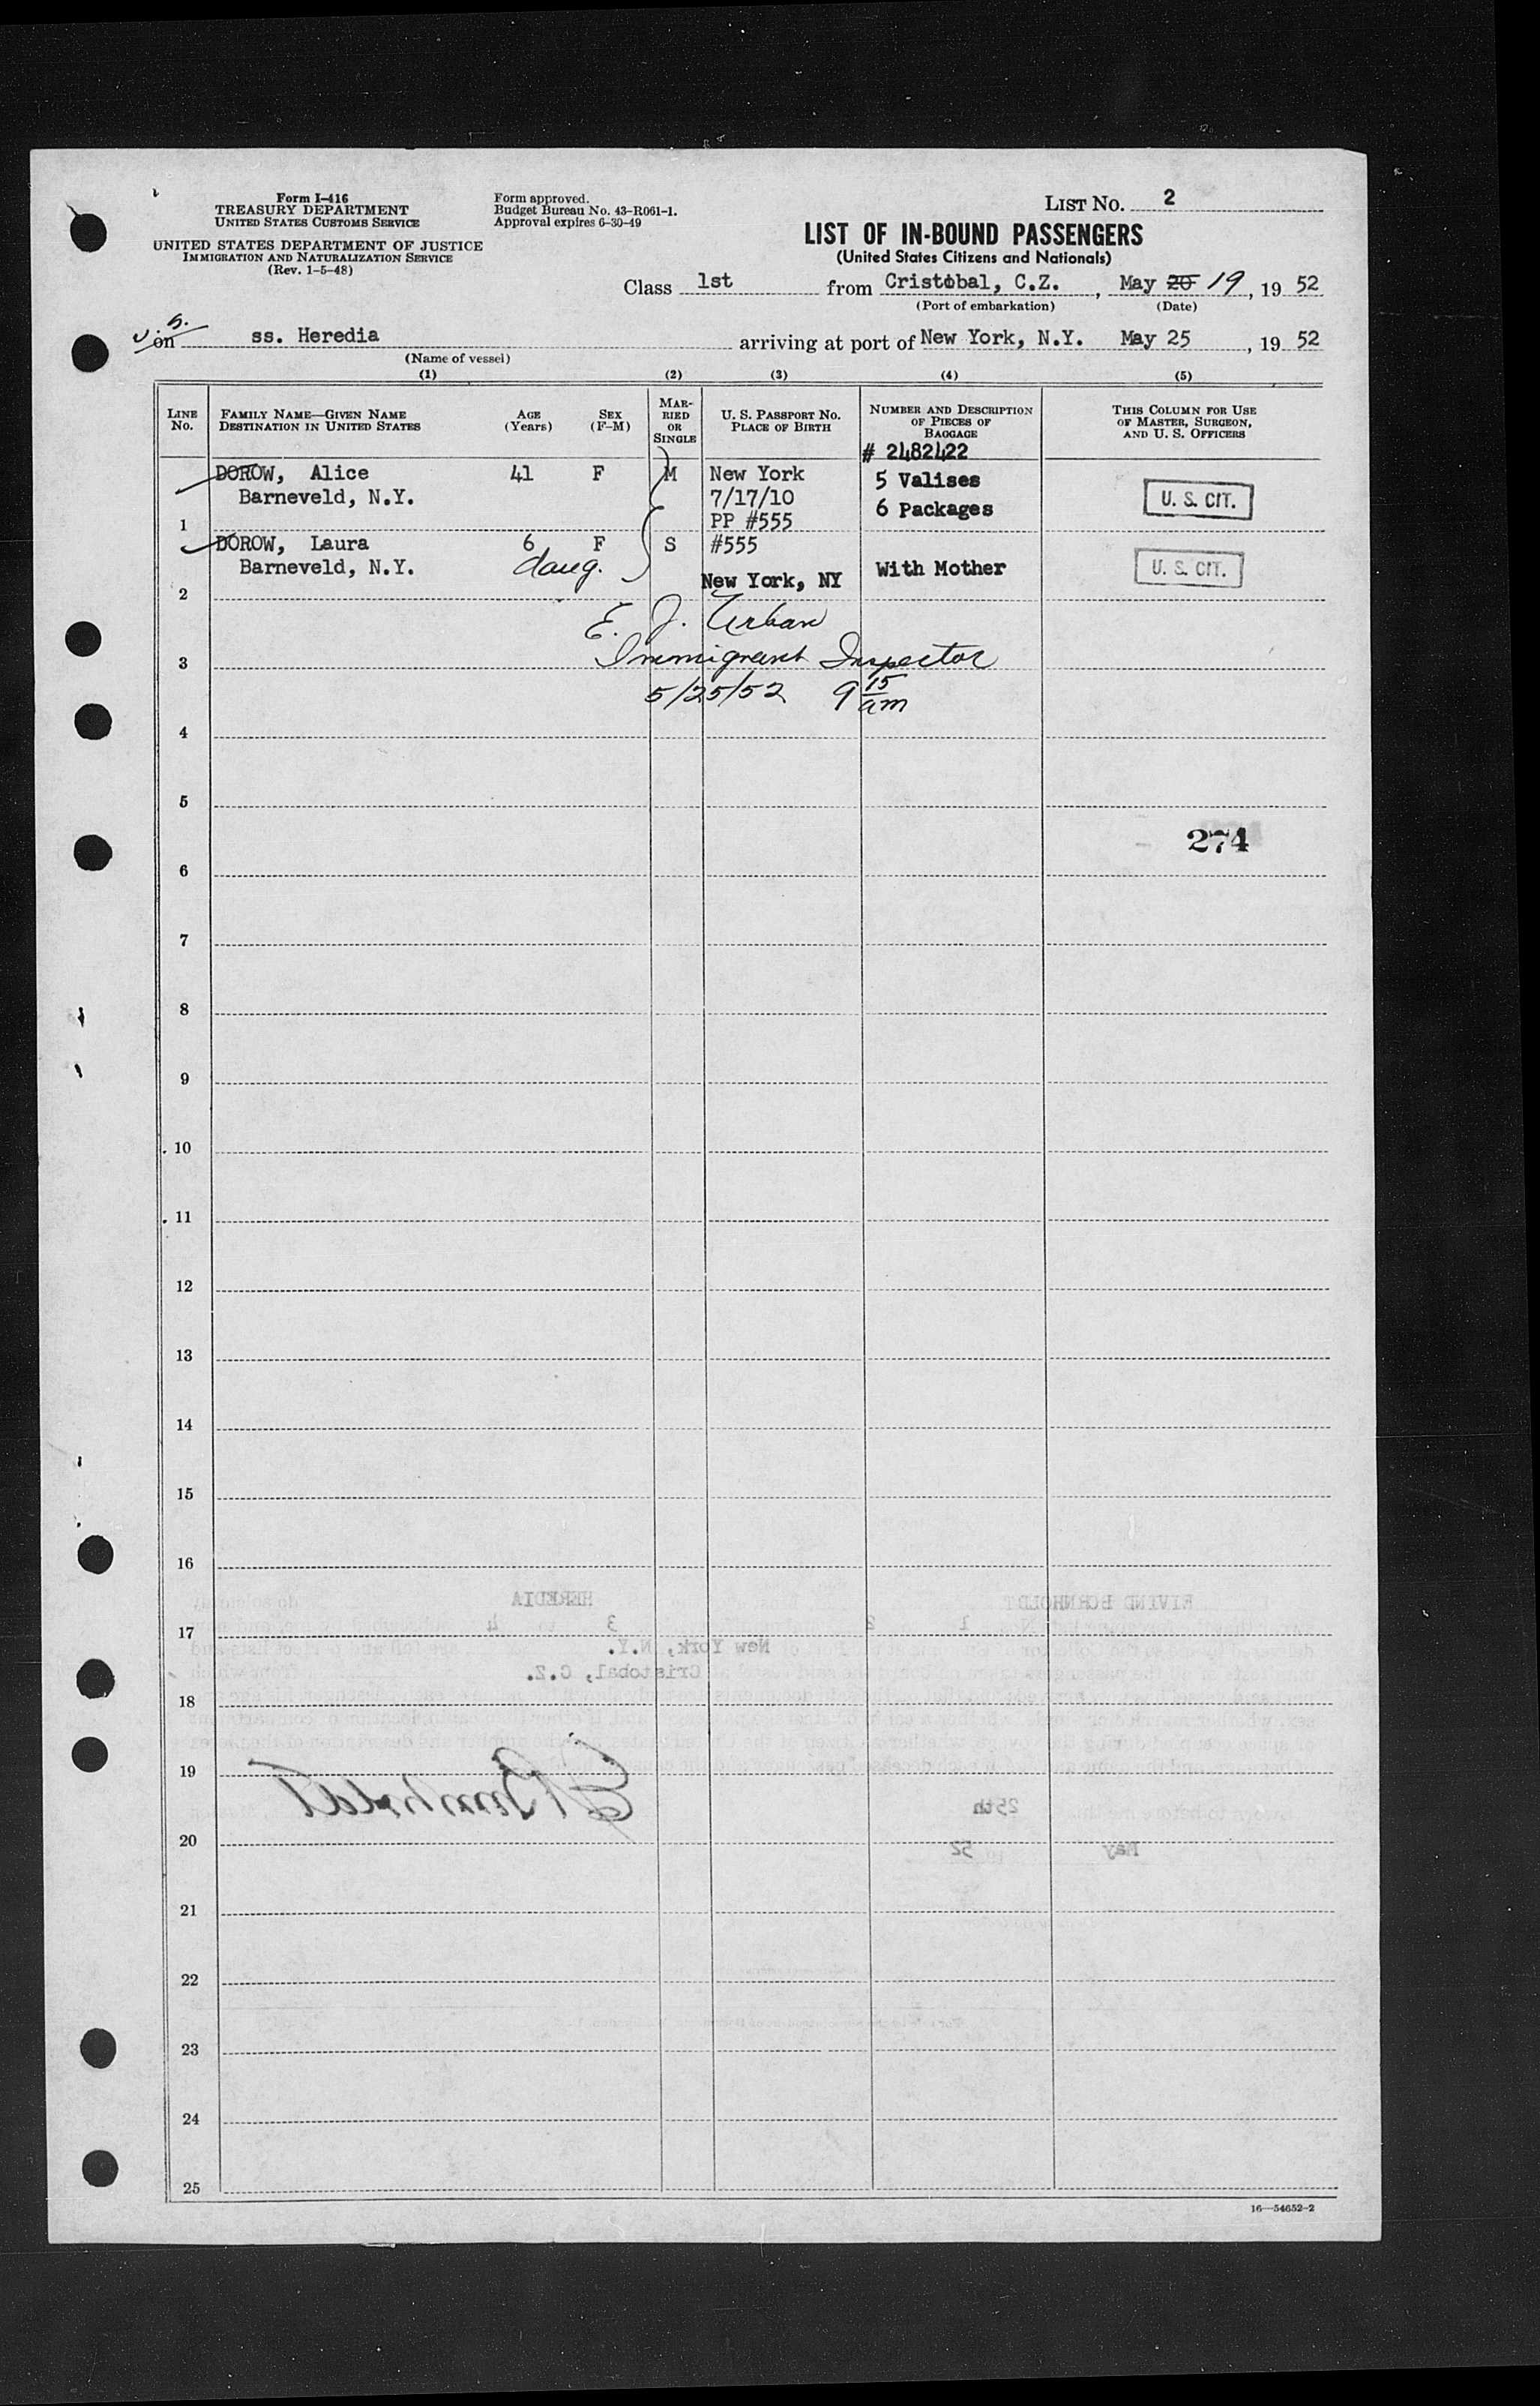 Form I-416
TREASURY DEPARTMENT
UNITED STATES CUSTOMS SERVICE
UNITED STATES DEPARTMENT OF JUSTICE
IMMIGRATION AND NATURALIZATION SERVICE
(Rev. 1-5-48)
Form approved.
Budget Bureau No. 43-R061-1.
Approval expires 6-30-49
LIST NO. 2
LIST OF IN-BOUND PASSENGERS
(United States Citizens and Nationals)
Class 1st from Cristobal, C.Z., May 20 19, 19 52
(Port of embarkation) (Date)
on ss. Heredia arriving at port of New York, N.Y. May 25, 19 52
(Name of vessel)
(1) (2) (3) (4) (5)
LINE No. FAMILY NAME—GIVEN NAME DESTINATION IN UNITED STATES AGE (Years) SEX (F-M) MARRIED OR SINGLE U. S. PASSPORT NO. PLACE OF BIRTH NUMBER AND DESCRIPTION OF PIECES OF BAGGAGE THIS COLUMN FOR USE OF MASTER, SURGEON, AND U. S. OFFICERS
# 2482422
DOROW, Alice 41 F M New York 5 Valises U. S. CIT.
Barneveld, N.Y. 7/17/10 6 Packages
1 PP #555
DOROW, Laura 6 F S #555
Barneveld, N.Y. daug. New York, NY With Mother U. S. CIT.
2
E. J. Urban
3 Immigrant Inspector
5/25/52 9 15 am
4
5
274
6
7
8
9
10
11
12
13
14
15
16
EIVIND BORNHOLDT HEREDIA
17 1 2 3 4
New York, N.Y.
Cristobal, C.Z.
18
19
25th
20
May 52
21
22
23
24
25
16—54652-2